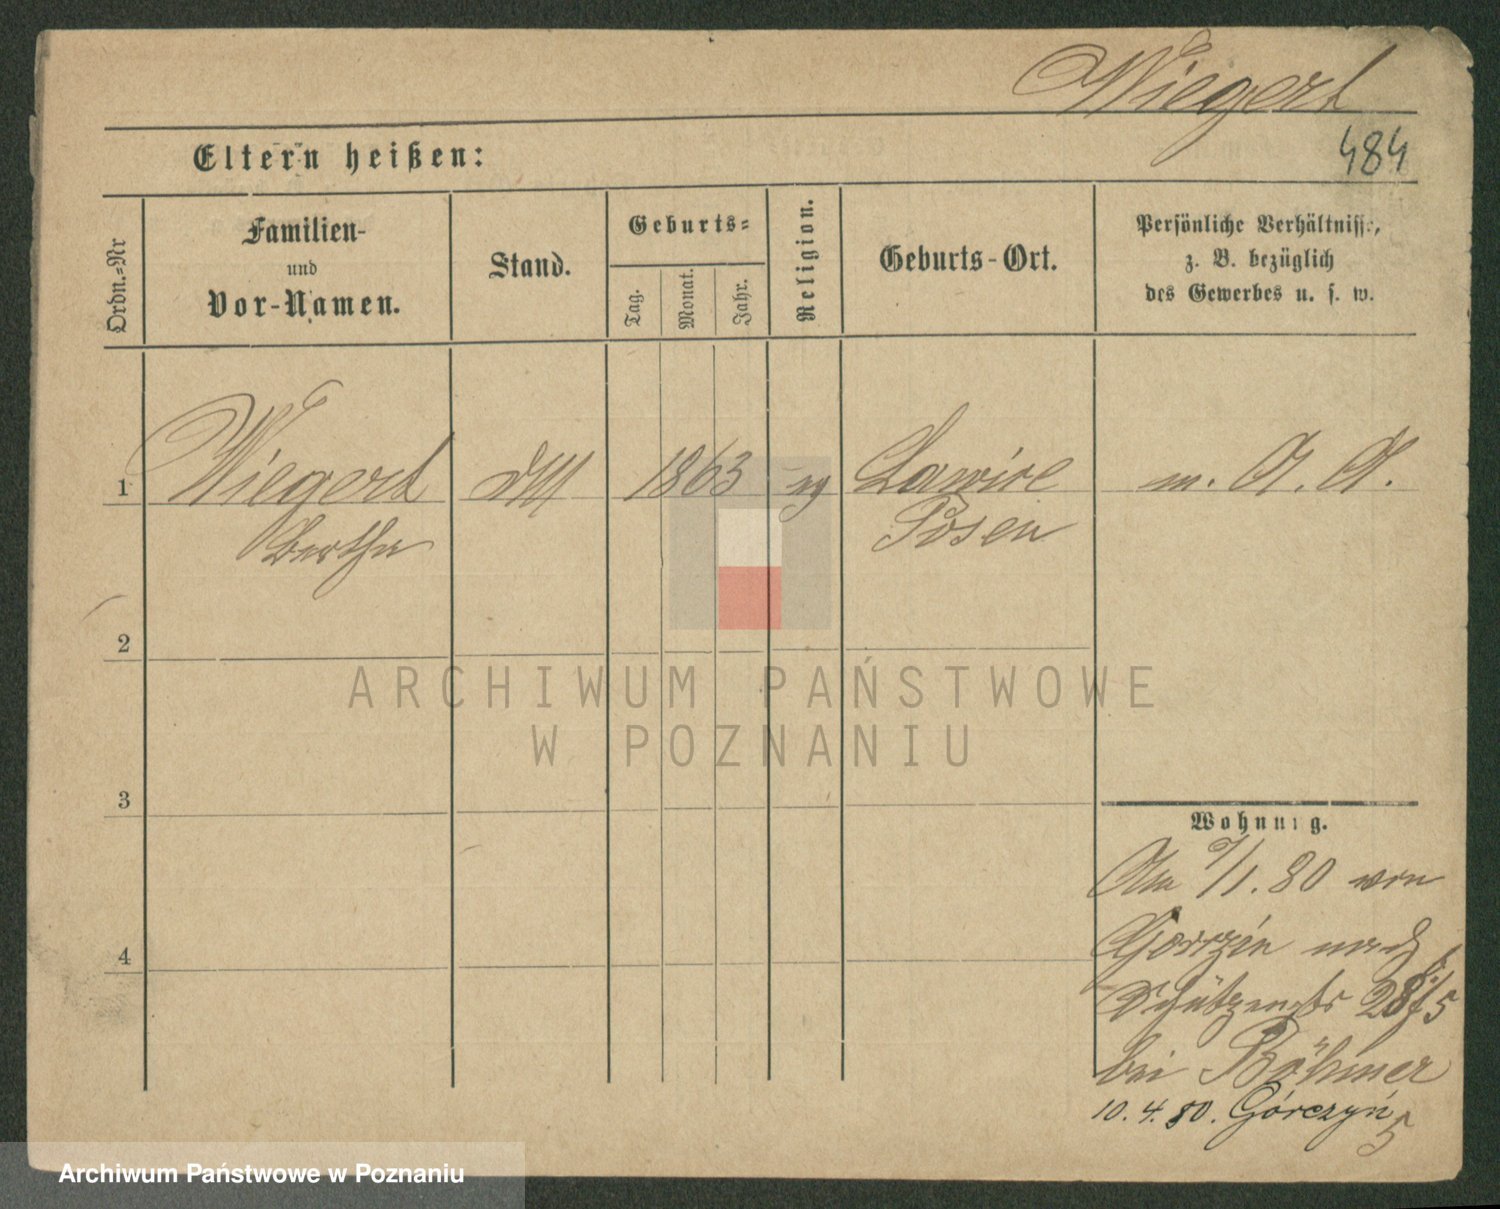 Wiegert
484
Eltern heißen:
Ordn.-Nr
Familien-
und
Vor-Namen.
Stand.
Geburts-
Tag.
Monat.
Jahr.
Religion.
Geburts-Ort.
Persönliche Verhältnisse,
z. B. bezüglich
des Gewerbes u. s. w.
1
Wiegert
Bertha
1863
Posen
m. A. A.
2
3
4
ARCHIWUM PAŃSTWOWE
W POZNANIU
Wohnung.
Am 7/1. 80 von
Gorczin nach
Schützenstr 28/5
bei Böhmer
10. 4. 80. Górczyń 5
Archiwum Państwowe w Poznaniu